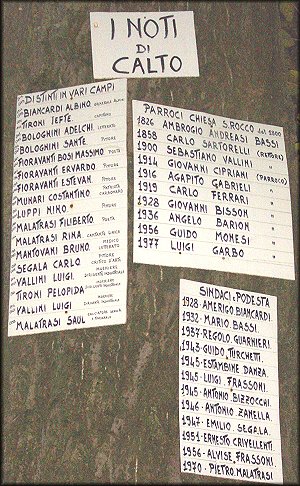 I NOTI
DI
CALTO
DISTINTI IN VARI CAMPI
BIANCARDI ALBINO
TIRONI JEFTE
BOLOGHINI ADELCHI LETTERATO
BOLOGHINI SANTE PITTORE
FIORAVANTI BOSI MASSIMO POETA
FIORAVANTI ERVARDO PITTORE
FIORAVANTI ESTEVAN PITTORE
MUNARI COSTANTINO
LUPPI NINO PITTORE
MALATRASI FILIBERTO POETA
MALATRASI RINA CANTANTE LIRICA
MANTOVANI BRUNO MEDICO LETTERATO
SEGALA CARLO PITTORE CRITICO D'ARTE
VALLINI LUIGI INGEGNERE DIRIGENTE INDUSTRIALE
TIRONI PELOPIDA
VALLINI LUIGI
MALATRASI SAUL
PARROCI CHIESA S. ROCCO dal 1800
1826 AMBROGIO ANDREASI BASSI
1858 CARLO SARTORELLI (RETTORE)
1900 SEBASTIANO VALLINI "
1914 GIOVANNI CIPRIANI (PARROCO)
1916 AGAPITO GABRIELI "
1919 CARLO FERRARI "
1928 GIOVANNI BISSON "
1936 ANGELO BARION "
1956 GUIDO MONESI "
1977 LUIGI GARBO "
SINDACI e PODESTÀ
1928 - AMERIGO BIANCARDI
1932 - MARIO BASSI
1937 - REGOLO GUARNIERI
1943 - GUIDO TURCHETTI
1945 - ESTAMBINE DANZA
1945 - LUIGI FRASSONI
1945 - ANTONIO BIZZOCCHI
1946 - ANTONIO ZANELLA
1947 - EMILIO SEGALA
1951 - ERNESTO CRIVELLENTI
1956 - ALVISE FRASSONI
1970 - PIETRO MALATRASI